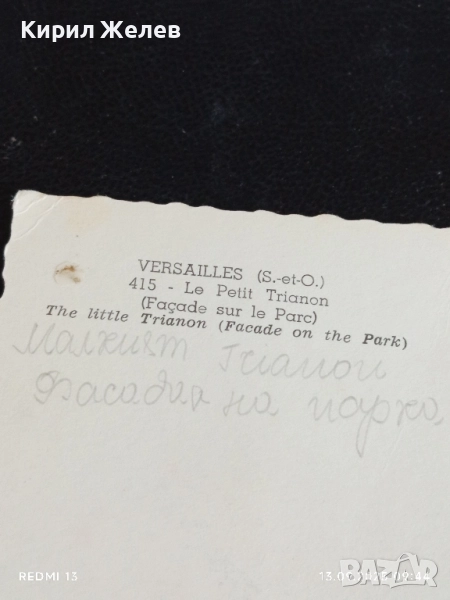 Кирил Желев
VERSAILLES (S.-et-O.)
415 - Le Petit Trianon
(Façade sur le Parc)
The little Trianon (Facade on the Park)
Малкият Трианон
Фасадата на парка
REDMI 13
БАЗАР